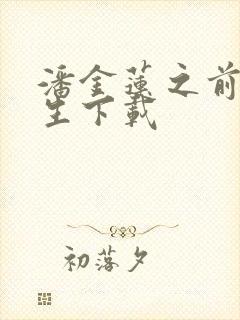 潘金蓮之前
生下載
初落夕